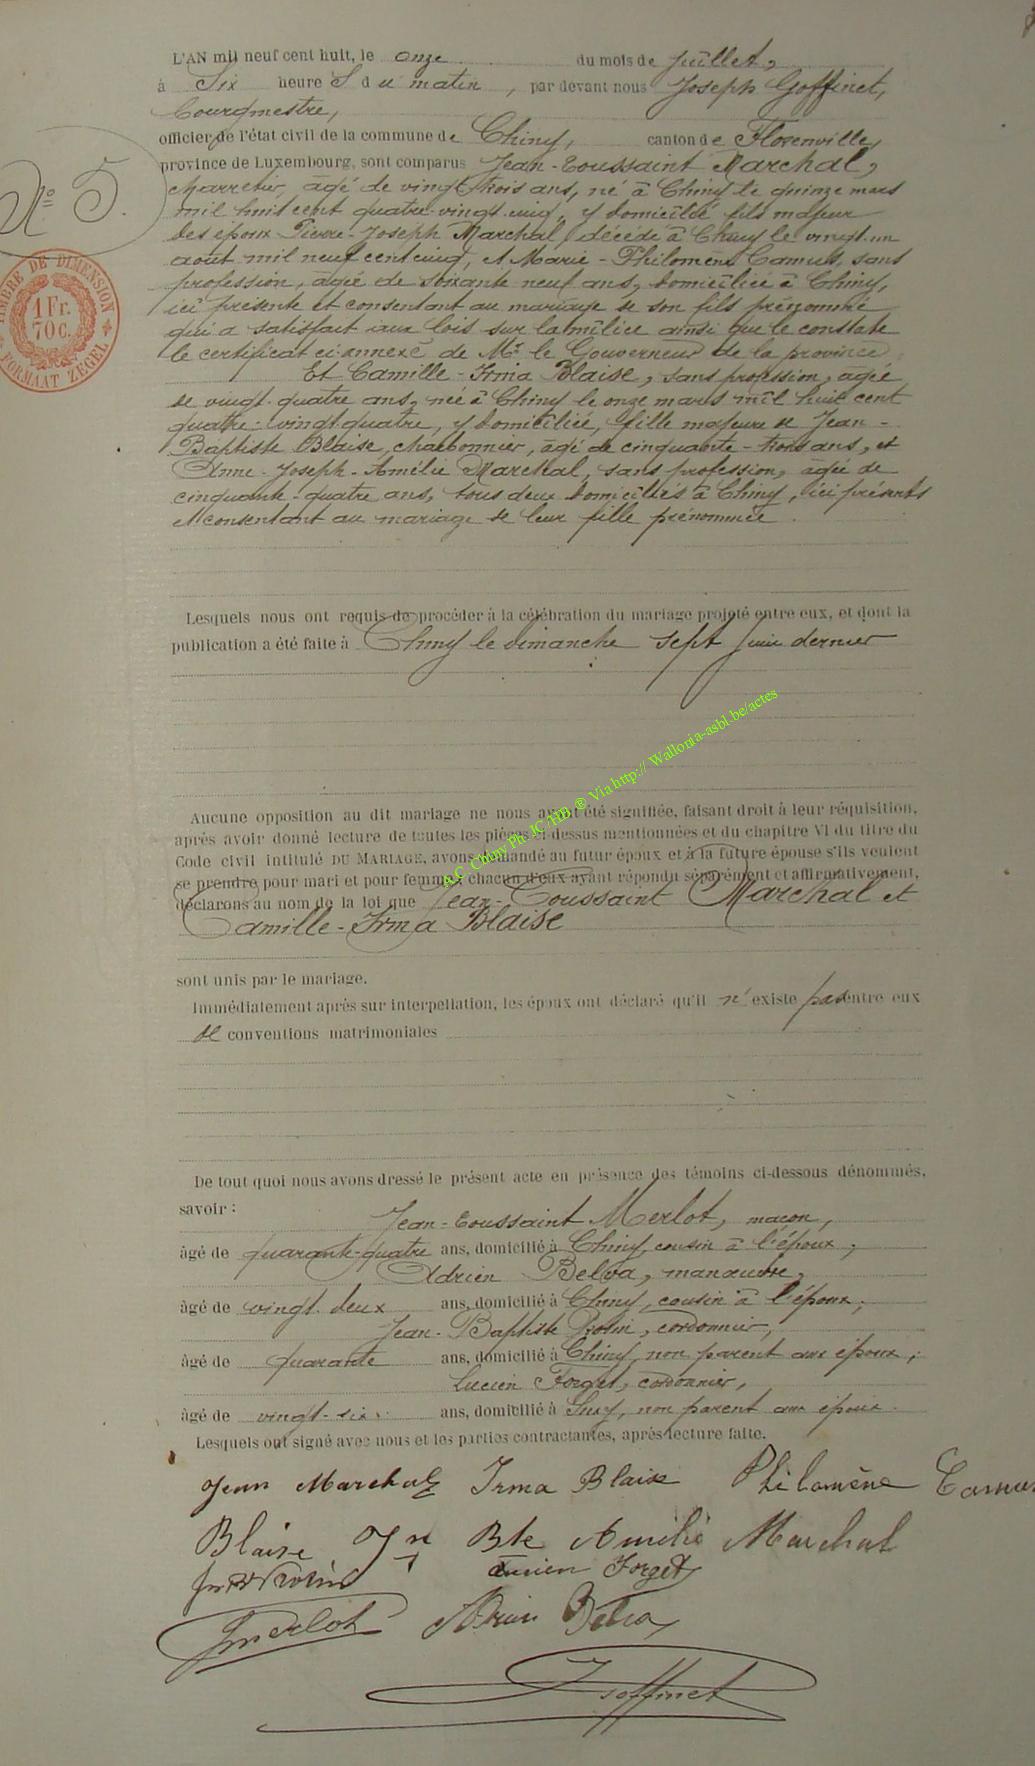 L'AN mil neuf cent huit, le onze du mois de juillet,
à Six heure S du matin, par devant nous Joseph Goffinet,
Bourgmestre,
officier de l'état civil de la commune de Chiny, canton de Florenville,
province de Luxembourg, sont comparus Jean-Toussaint Marchal,
charretier, âgé de vingt trois ans, né à Chiny le quinze mars
mil huit cent quatre-vingt cinq, y domicilié, fils majeur
des époux Pierre-Joseph Marchal, décédé à Chiny le vingt-un
août mil neuf cent cinq, et Marie-Philomène Camus, sans
profession, âgée de soixante neuf ans, domiciliée à Chiny,
ici présente et consentant au mariage de son fils prénommé
qui a satisfait aux lois sur la milice ainsi que le constate
le certificat ci-annexé de Mr le Gouverneur de la province
Et Camille-Irma Blaise, sans profession, âgée
de vingt-quatre ans, née à Chiny le onze mars mil huit cent
quatre-vingt-quatre, y domiciliée, fille majeure de Jean-
Baptiste Blaise, charbonnier, âgé de cinquante-trois ans, et
Anne-Joseph-Amélie Marchal, sans profession, âgée de
cinquante-quatre ans, tous deux domiciliés à Chiny, ici présents
et consentant au mariage de leur fille prénommée.
N° 5.
TIMBRE DE DIMENSION
1 Fr.
70 c.
FORMAAT ZEGEL
Lesquels nous ont requis de procéder à la célébration du mariage projeté entre eux, et dont la
publication a été faite à Chiny le dimanche sept juin dernier
A.C. Chiny Ph. JC /HB ® Via http:// Wallonia-asbl.be/actes
Aucune opposition au dit mariage ne nous ayant été signifiée, faisant droit à leur réquisition,
après avoir donné lecture de toutes les pièces ci-dessus mentionnées et du chapitre VI du titre du
Code civil intitulé DU MARIAGE, avons demandé au futur époux et à la future épouse s'ils veulent
se prendre pour mari et pour femme; chacun d'eux ayant répondu séparément et affirmativement,
déclarons au nom de la loi que Jean-Toussaint Marchal et
Camille-Irma Blaise
sont unis par le mariage.
Immédiatement après sur interpellation, les époux ont déclaré qu'il n'existe pas entre eux
de conventions matrimoniales
De tout quoi nous avons dressé le présent acte en présence des témoins ci-dessous dénommés,
savoir : Jean-Toussaint Merlot, maçon,
âgé de quarante-quatre ans, domicilié à Chiny, cousin à l'époux,
Adrien Belva, manœuvre,
âgé de vingt-deux ans, domicilié à Chiny, cousin à l'époux,
Jean-Baptiste Rosin, cordonnier,
âgé de quarante ans, domicilié à Chiny, non parent aux époux,
Lucien Forget, cordonnier,
âgé de vingt-six ans, domicilié à Suxy, non parent aux époux.
Lesquels ont signé avec nous et les parties contractantes, après lecture faite.
Jean Marchal Irma Blaise Philomène Camus
Blaise Jn Bte Amélie Marchal
Lucien Forget
Merlot Adrien Belva
J Goffinet